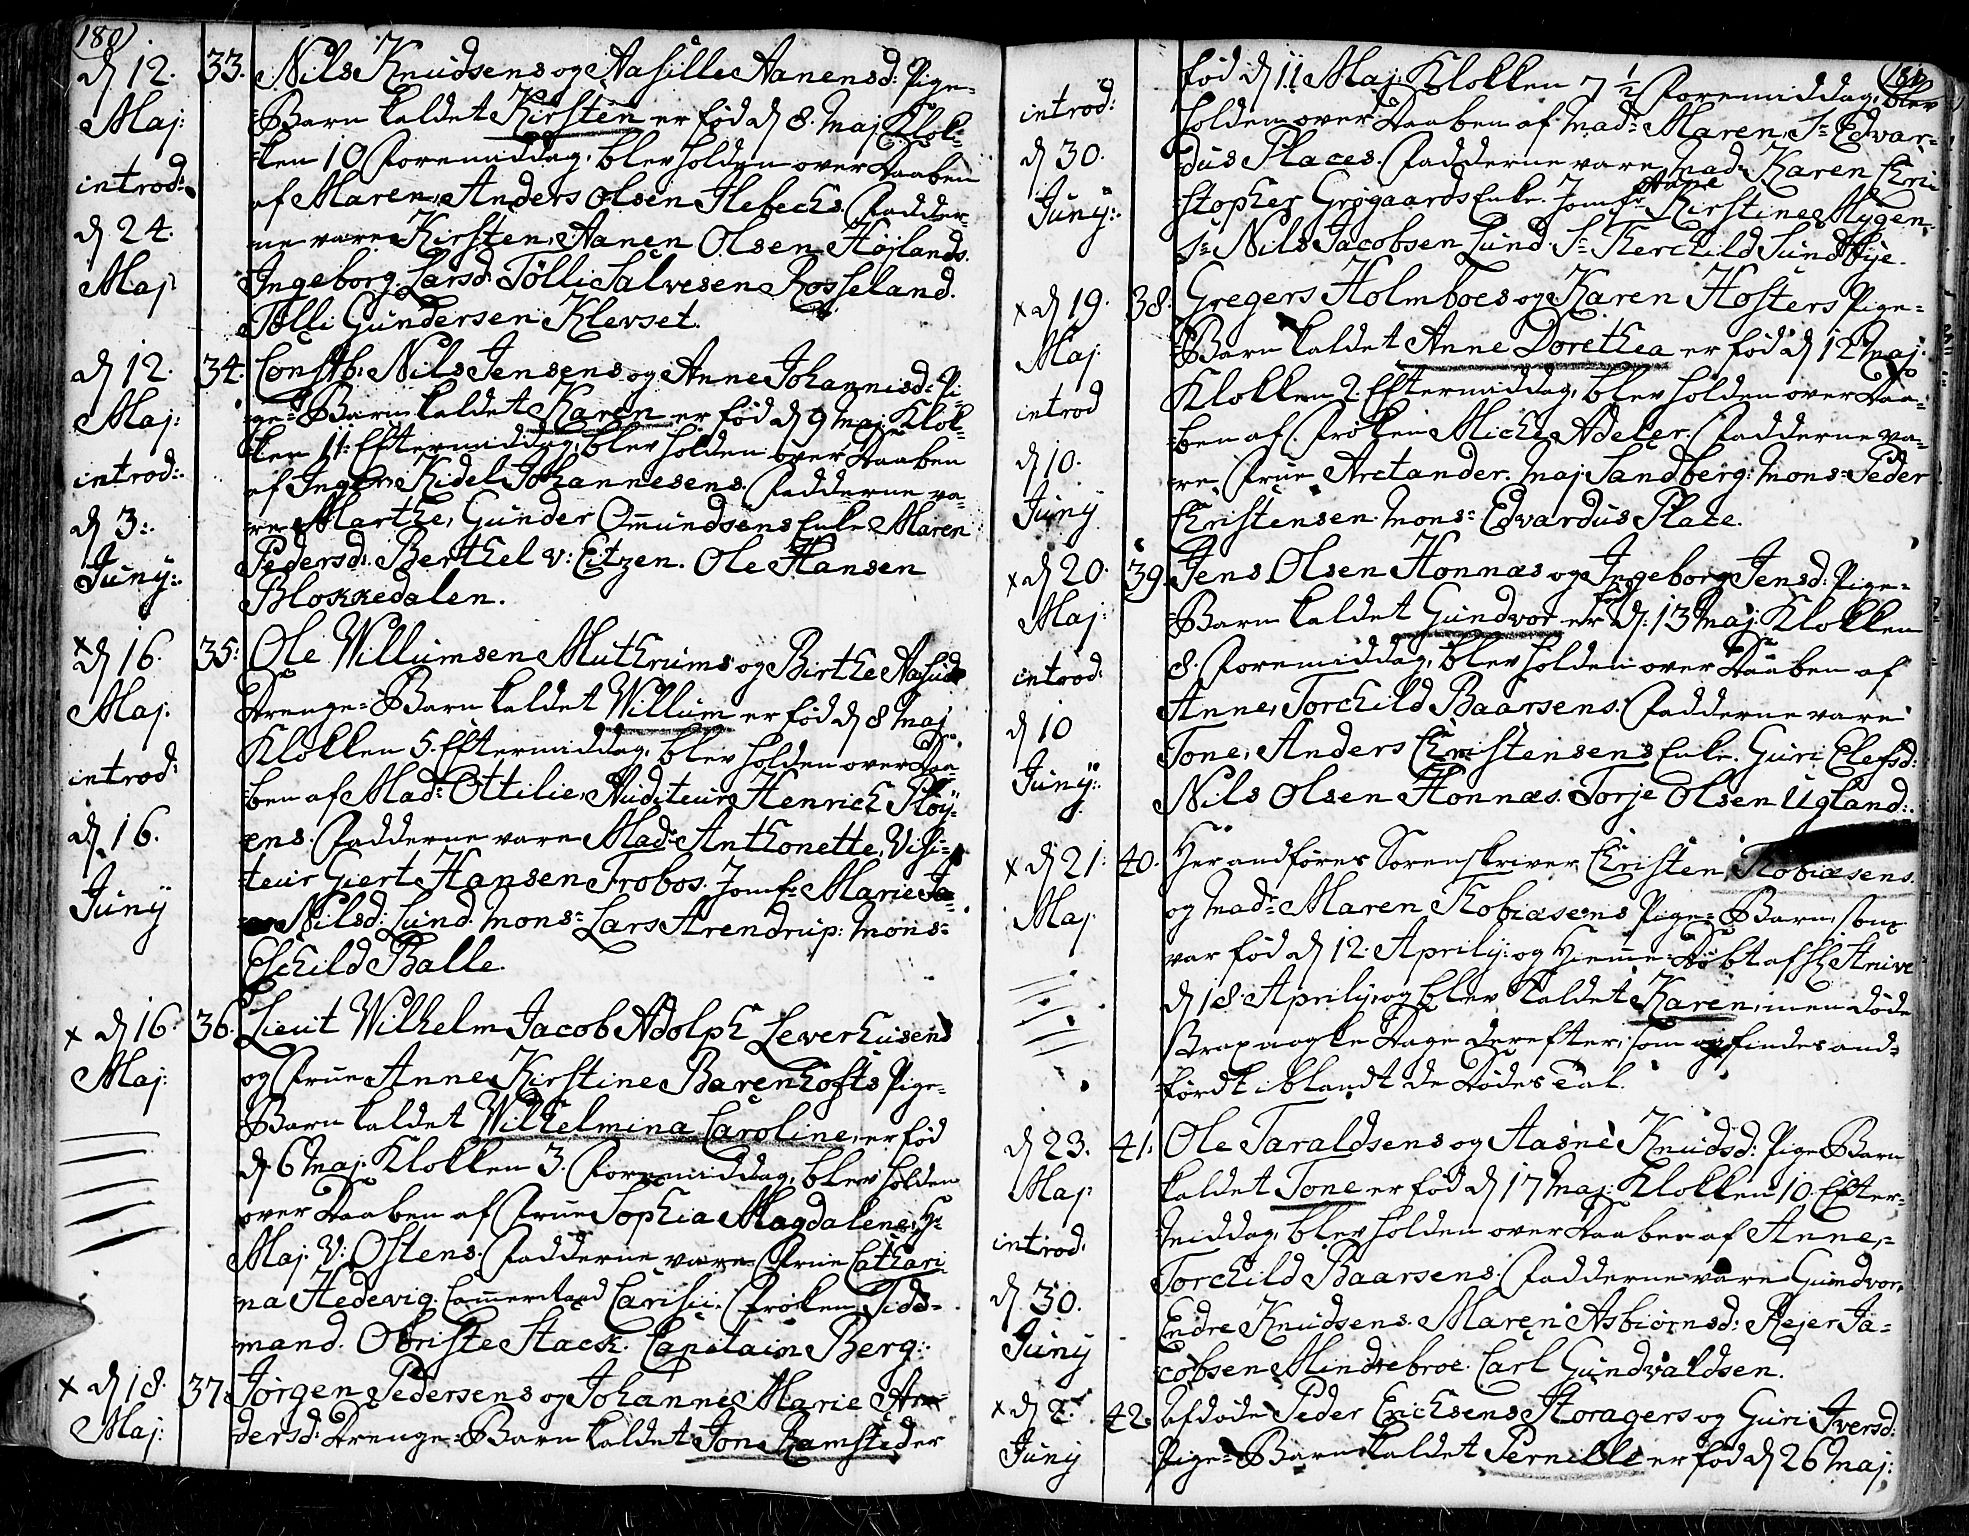 180
d 12. Maj: introd: d 24. Maj
33. Nils Knudsens og Aasille Aanensd: Pige-
Barn kaldet Kirsten er fød d 8. Maj Klok-
ken 10 Formiddag, blev holden over Daaben
af Maren, Anders Olsen Hebechs. Fadder-
ne vare Kirsten, Aanen Olsen Højlands.
Ingeborg Larsd. Tølli Salvesen Rosseland.
Tølli Gundersen Klevset.
d 12. Maj: introd: d 3: Juny:
34. Constb: Nils Jensens og Anne Johannisd: Pi-
ge-Barn kaldet Karen er fød d 9 Maj Klok-
ken 11: Eftermiddag, blev holden over Daaben
af Inger, Kidel Johannesens. Fadderne va-
re Marthe, Gunder Omundsens Enke Maren
Pedersd: Berthel v: Eitzen. Ole Hansen
Blokkedalen.
x d 16. Maj. introd: d. 16. Juny
35: Ole Willumsen Muthrums og Birthe
Drenge-Barn kaldet Willum er fød d 8 Maj
Klokken 5. Eftermiddag, blev holden over Daa-
ben af Mad: Ottilie, Auditeur Henrich Pløy-
ens. Fadderne vare Mad: Anthonette, Visi-
teur Giert Hansen Frobos. Jomf: Marie
Nilsd: Lund. Mons: Lars Arendrup: Mons:
Eschild Balle.
x d 16: Maj:
36. Lieut Wilhelm Jacob Adolph Leverhusens
og Frue Anne Kirstine Barenhofts Pige-
Barn kaldet Wilhelmina Caroline, er fød
d 6 Maj. Klokken 3. Foremiddag, blev holden
over Daaben af Frue Sophia Magdalene, H:
Maj. V: Ostens. Fadderne vare Frue Cathari-
na Hedevig. Camerraad Carisii. Frøken Tid-
mand. Obriste Stack. Capitain Berg:
x d 18. Maj:
37. Jørgen Pedersens og Johanne Marie An-
dersd: Drenge-Barn kaldet Jon Ramsteder
181
introd: d 30. Juny:
fød d 11 Maj: Klokken 7 1/2 Foremiddag, blev
holden over Daaben af Mad: Maren, Sr: Edvar-
dus Places. Fadderne vare Mad: Karen Chri-
stopher Grøgaards Enke. Jomfr Kirstine Mygen.
Sr: Nils Jacobsen Lund. Sr: Therchild Sundbye.
x d 19. Maj. introd d 10. Juny
38. Gregers Holmboes og Karen Hosters Pige-
Barn kaldet Anne Dorethea er fød d 12 Maj:
Klokken 2. Eftermiddag, blev holden over Daa-
ben af Frøken Miche Adeler. Fadderne va-
re Frue Arctander. Maj Sandberg: Mons: Peder
Christensen. Mons: Edvardus Place.
x d 20. Maj: introd: d 10 Juny:
39. Jens Olsen Honnæs og Ingeborg Jensd: Pige-
Barn kaldet Gundvor er fød d. 13 Maj: Klokken
8. Foremiddag, blev holden over Daaben af
Anne, Torchild Baarsens. Fadderne vare
Tone, Anders Christensens Enke. Guri Elefsd:
Nils Olsen Honnæs. Torje Olsen Ugland:
x d 21: Maj
40. Her andføres Sorenskriver Christen Thobiæsens.
og Mad: Maren Thobiæsens Pige-Barn, som
var fød d 12. Aprily: og Hiemme-Døbt af H:
d 18. Aprily: og blev kaldet Karen, men døde
Strax nogle Dage derefter, som og findes and-
førdt iblandt de Dødes Tal.
d 23. Maj introd. d. 30. Juny
41. Ole Taraldsens og Aasne Knudsd: Pige Barn
kaldet Tone er fød d 17 Maj: Klokken 10. Efter-
middag, blev holden over Daaben af Anne,
Torchild Baarsens. Fadderne vare Gundvor,
Endre Knudsens. Maren Asbiørnsd: Rejer Ja-
cobsen Mindrebroe. Carl Gundvaldsen.
x d 2. Juny
42. Afdøde Peder Erichsens Storagers og Guri Iversd:
Pige-Barn kaldet Pernille er fød d 26 Maj: